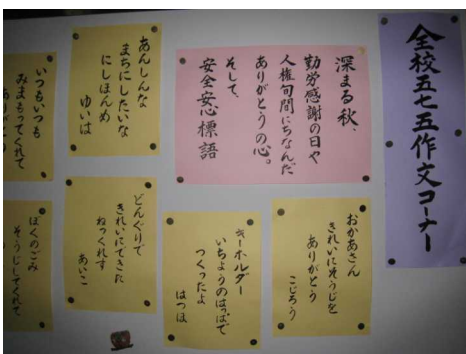 全校五七五作文コーナー
深まる秋、
勤労感謝の日や
人権旬間にちなんだ
ありがとうの心。
そして、
安全安心標語
あんしんな
まちにしたいな
にしほんめ
ゆいは
いつもいつも
みまもってくれて
ありがとう
おかあさん
きれいにそうじを
ありがとう
こじろう
キーホルダー
いちょうのはっぱで
つくったよ
はつほ
どんぐりで
きれいにできた
ねっくれす
あいこ
ぼくのごみ
そうじしてくれて